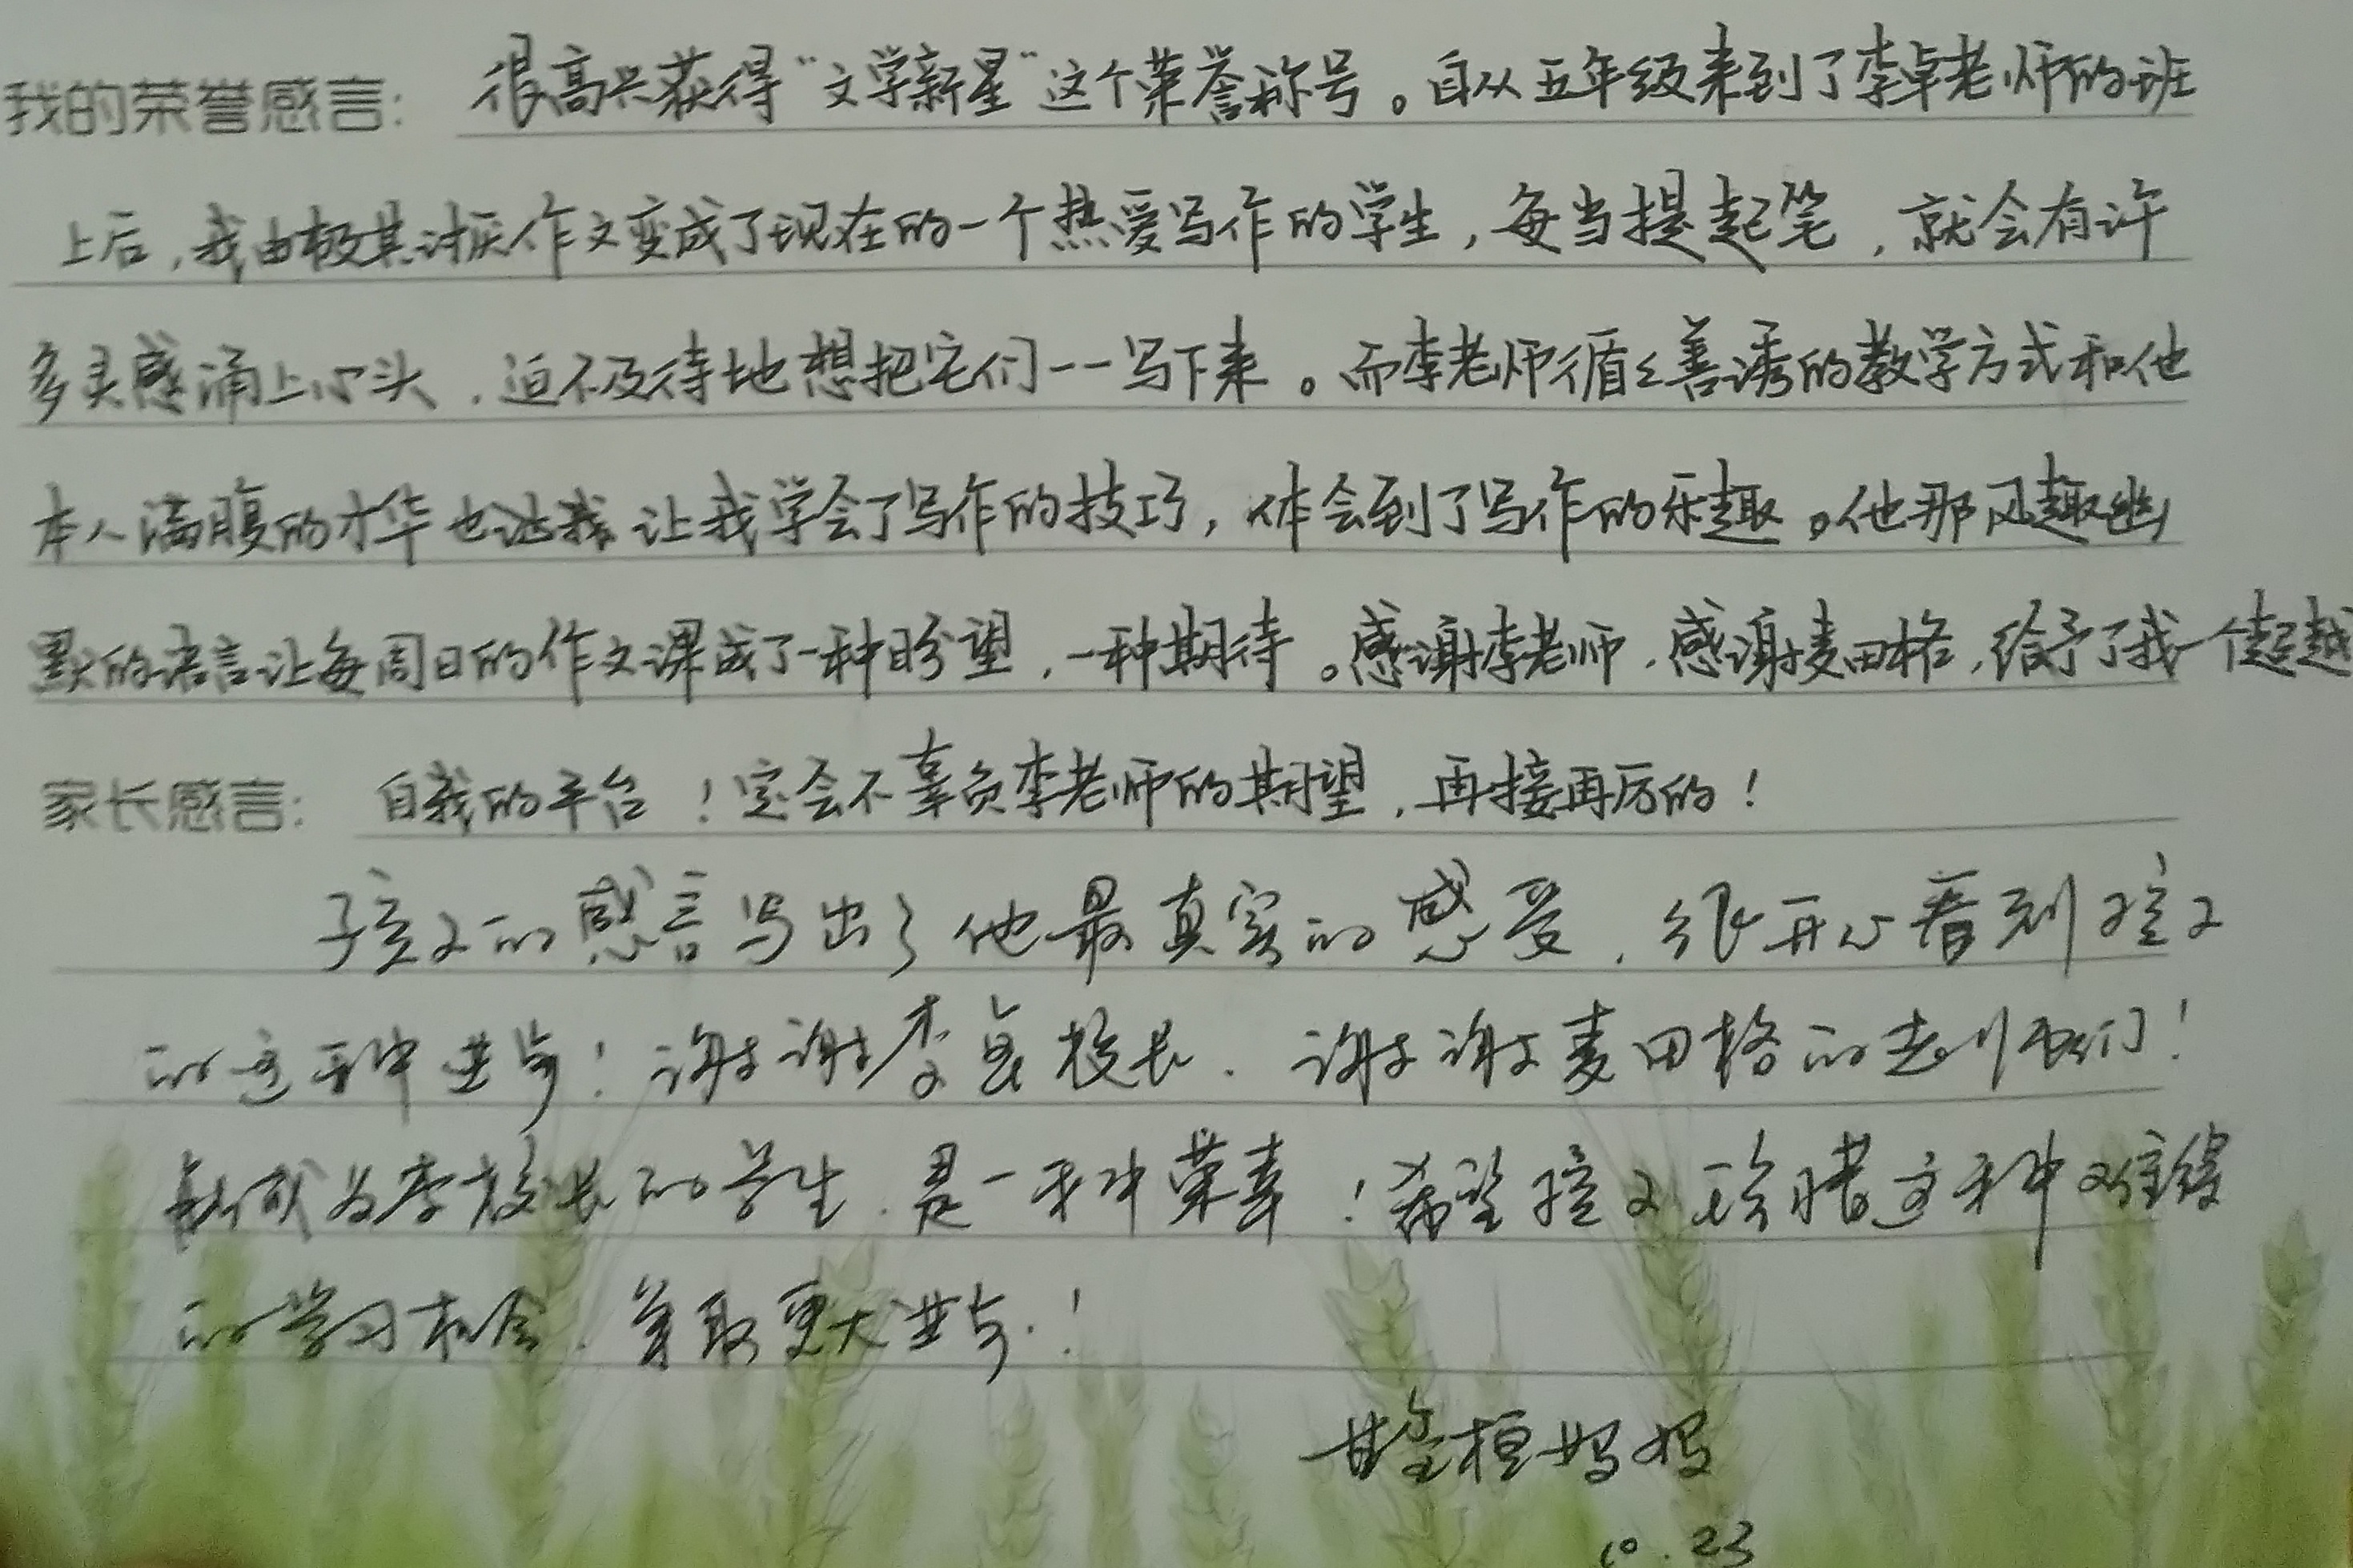 我的荣誉感言: 很高兴获得“文学新星”这个荣誉称号。自从五年级来到了李卓老师的班
上后,我由极其讨厌作文变成了现在的一个热爱写作的学生,每当提起笔,就会有许
多灵感涌上心头,迫不及待地想把它们一一写下来。而李老师循々善诱的教学方式和他
本人满腹的才华也让我学会了写作的技巧,体会到了写作的乐趣。他那风趣幽
默的语言让每周日的作文课成了一种盼望,一种期待。感谢李老师,感谢麦田格,给予了我一个超越
家长感言: 自我的平台!定会不辜负李老师的期望,再接再厉的!
孩子的感言写出了他最真实的感受,很开心看到孩子
的这种进步!谢谢李卓校长,谢谢麦田格的老师们!
能成为李校长的学生,是一种荣幸!希望孩子珍惜这种难得
的学习机会,争取更大进步!
妈妈
10.23